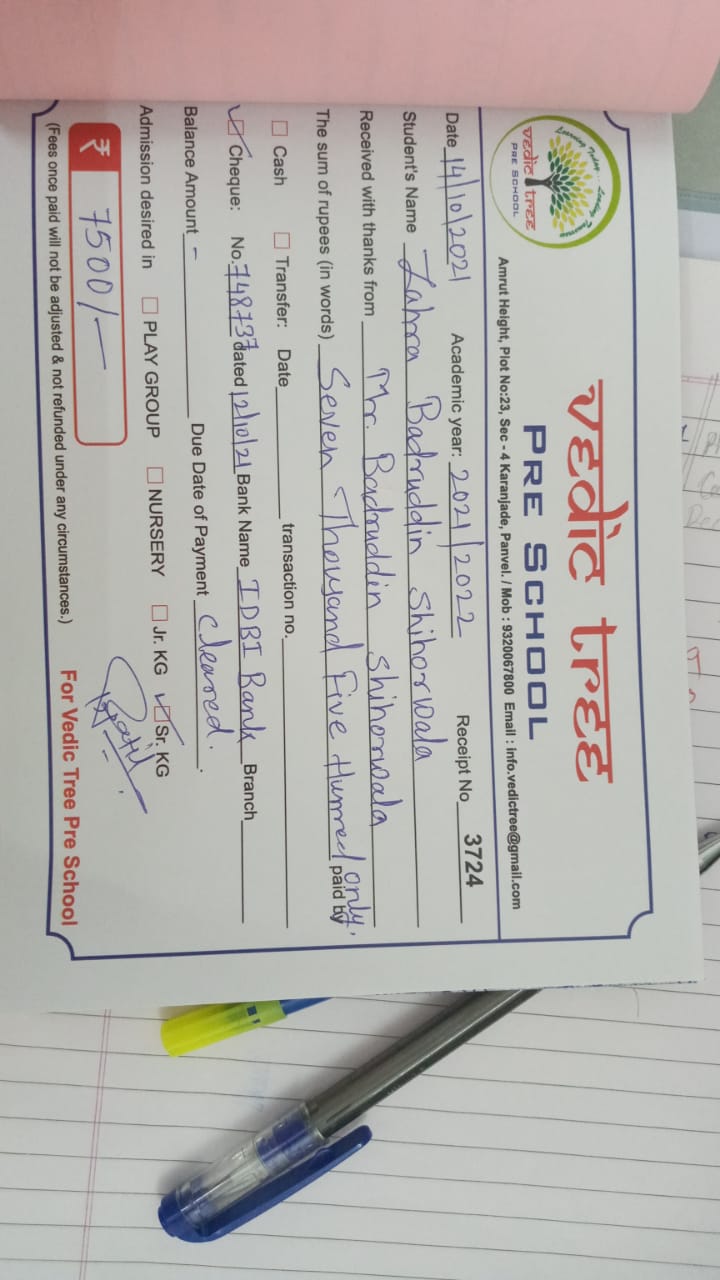 Learning Today... Leading Tomorrow
vedic tree
PRE SCHOOL
vedic tree
PRE SCHOOL
Amrut Height, Plot No:23, Sec - 4 Karanjade, Panvel. / Mob : 9320067800 Email : info.vedictree@gmail.com
Date 14/10/2021 Academic year: 2021/2022 Receipt No 3724
Student's Name Zahra Badruddin Shihorwala
Received with thanks from Mr. Badruddin Shihorwala
The sum of rupees (in words) Seven Thousand Five Hunred only. paid by
Cash Transfer: Date transaction no.
Cheque: No. 748737 dated 12/10/21 Bank Name IDBI Bank Branch
Balance Amount - Due Date of Payment Cleared.
Admission desired in PLAY GROUP NURSERY Jr. KG Sr. KG
₹ 7500/-
(Fees once paid will not be adjusted & not refunded under any circumstances.) For Vedic Tree Pre School